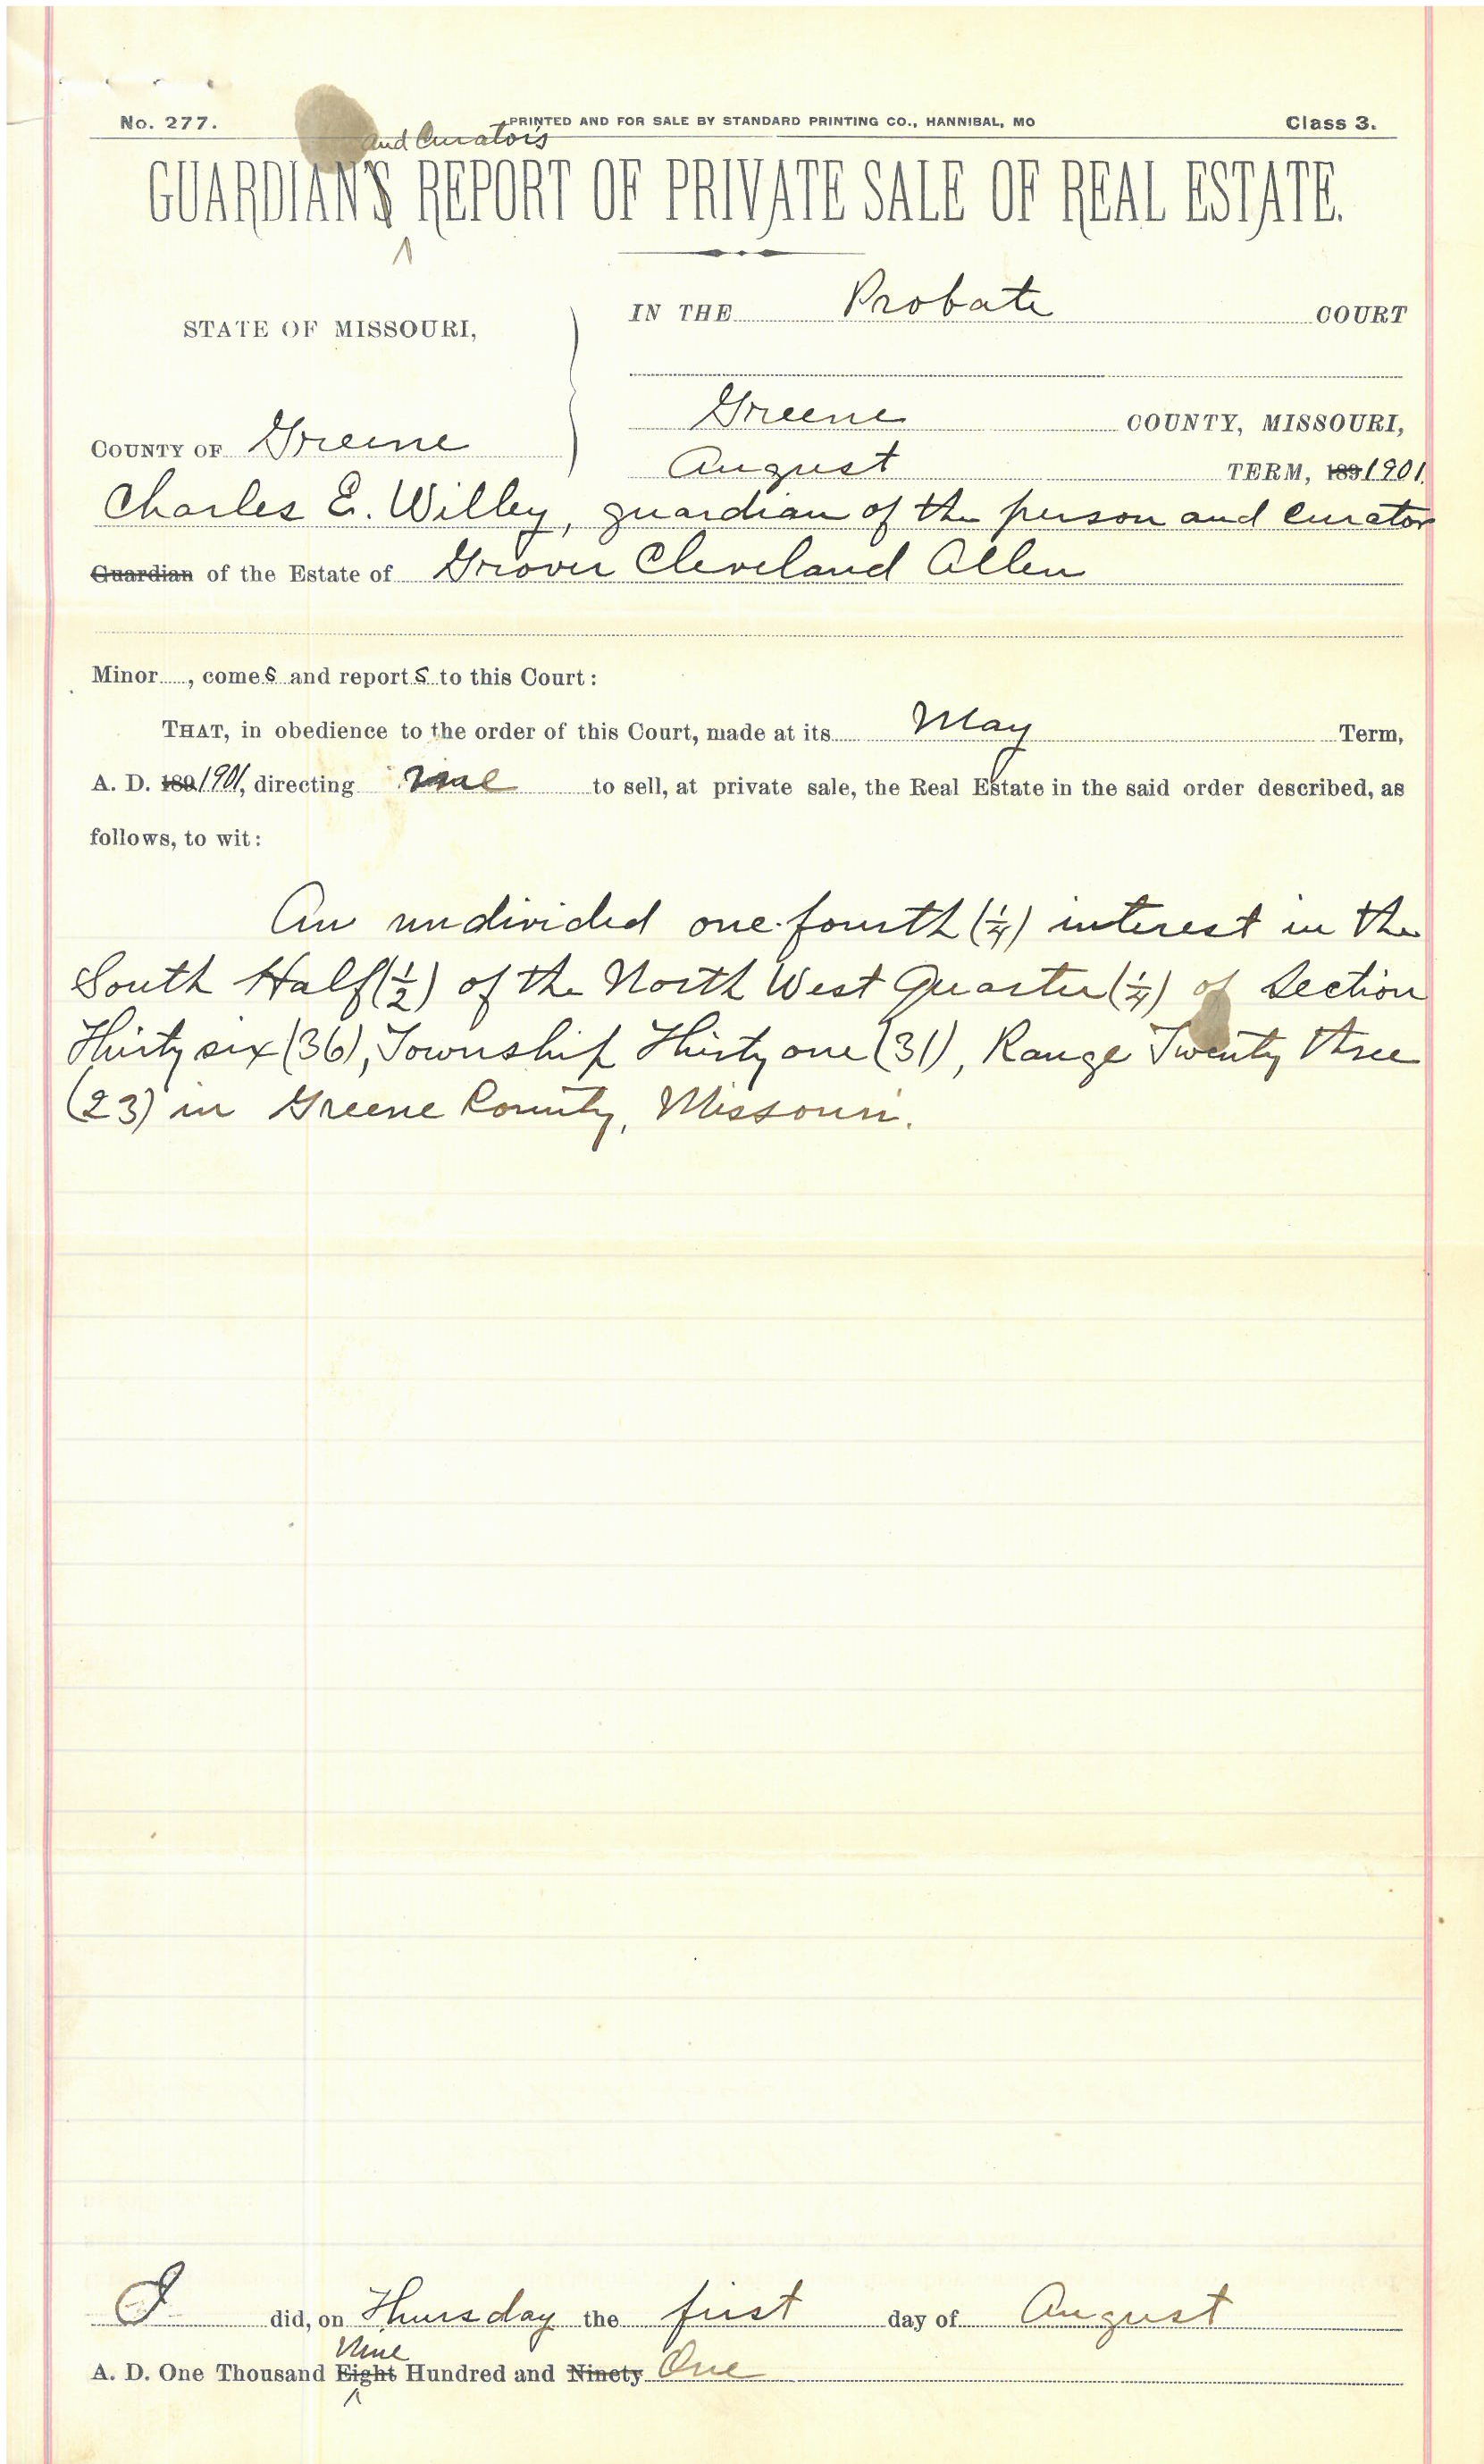 No. 277. PRINTED AND FOR SALE BY STANDARD PRINTING CO., HANNIBAL, MO Class 3.
and Curator's
GUARDIAN'S REPORT OF PRIVATE SALE OF REAL ESTATE.
IN THE Probate COURT
STATE OF MISSOURI,
Greene COUNTY, MISSOURI,
COUNTY OF Greene
August TERM, 189 1901.
Charles E. Willey, guardian of the person and curator
Guardian of the Estate of Grover Cleveland Allen
Minor , comes and reports to this Court:
THAT, in obedience to the order of this Court, made at its May Term,
A. D. 189 1901, directing me to sell, at private sale, the Real Estate in the said order described, as
follows, to wit:
An undivided one-fourth (1/4) interest in the
South Half (1/2) of the North West Quarter (1/4) of Section
Thirty six (36), Township Thirty one (31), Range Twenty three
(23) in Greene County, Missouri.
I did, on Thursday the first day of August
Nine
A. D. One Thousand Eight Hundred and Ninety One